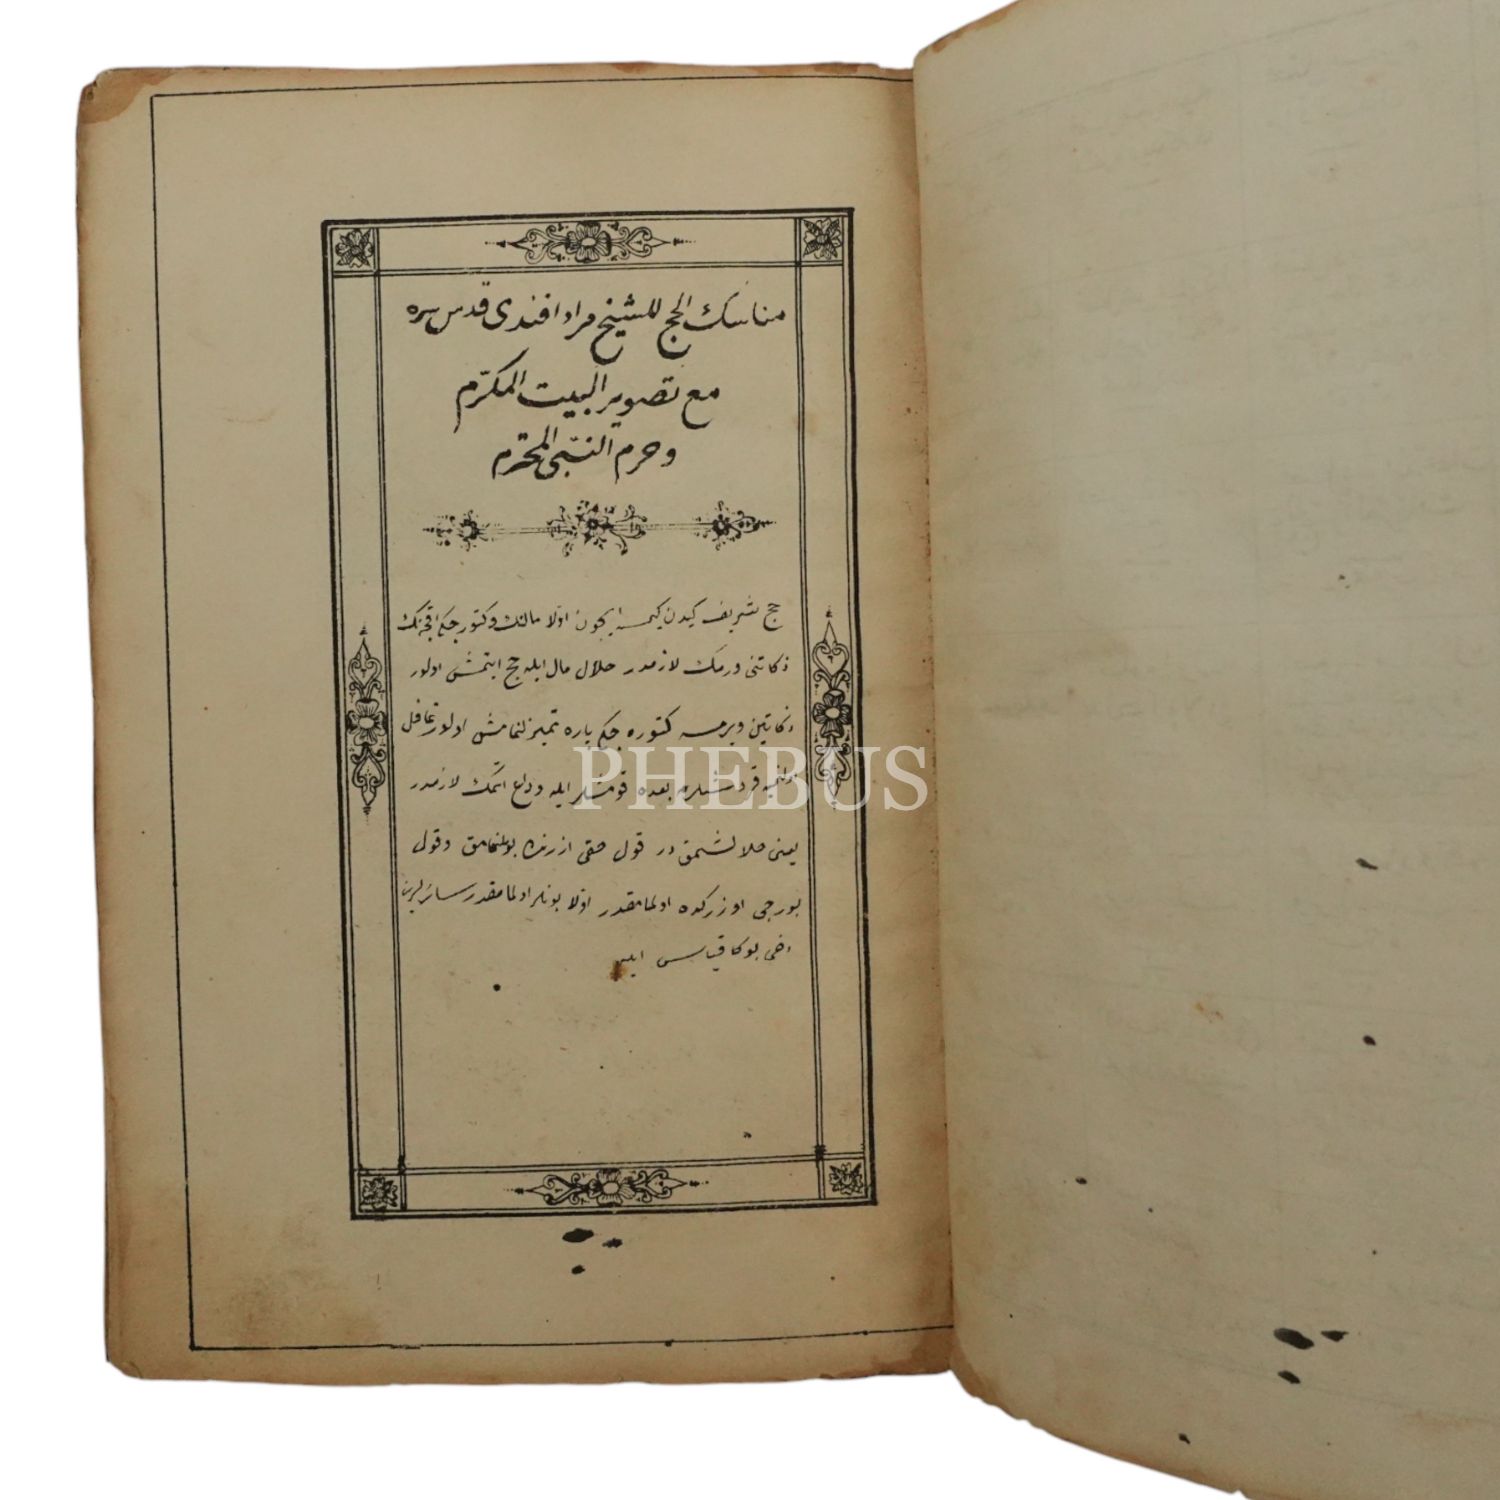 مناسك الحج للشيخ مراد افندى قدس سره
مع تصوير البيت المكرّم
وحرم النبّى المحترم
حج شريف كيدن كيمسه ايچون اوّلا مالنك وكتوره جكى اقچه نك
زكاتنى ويرمك لازمدر حلال مال ايله حج ايتمش اولور
زكاتين ويرمسه كتوره جكى پاره تميزلنمامش اولور غافل
اولنميه قرنداشلره بعده قومشولر ايله وداع ايتمك لازمدر
يعنى حلاللشمق در قول حقى اوزرنده بولنمامق وقول
بورجى اوزركده اولمامقدر اوّلا بونلر اولمامقدر سائرلرين
دخى بوكا قياس ايله
PHEBUS